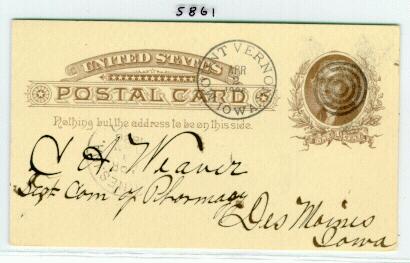 5861
UNITED STATES
MOUNT VERNON
APR
IOWA
POSTAL CARD
Nothing but the address to be on this side.
A Weaver
Sept Com of Pharmacy
Des Moines
Iowa